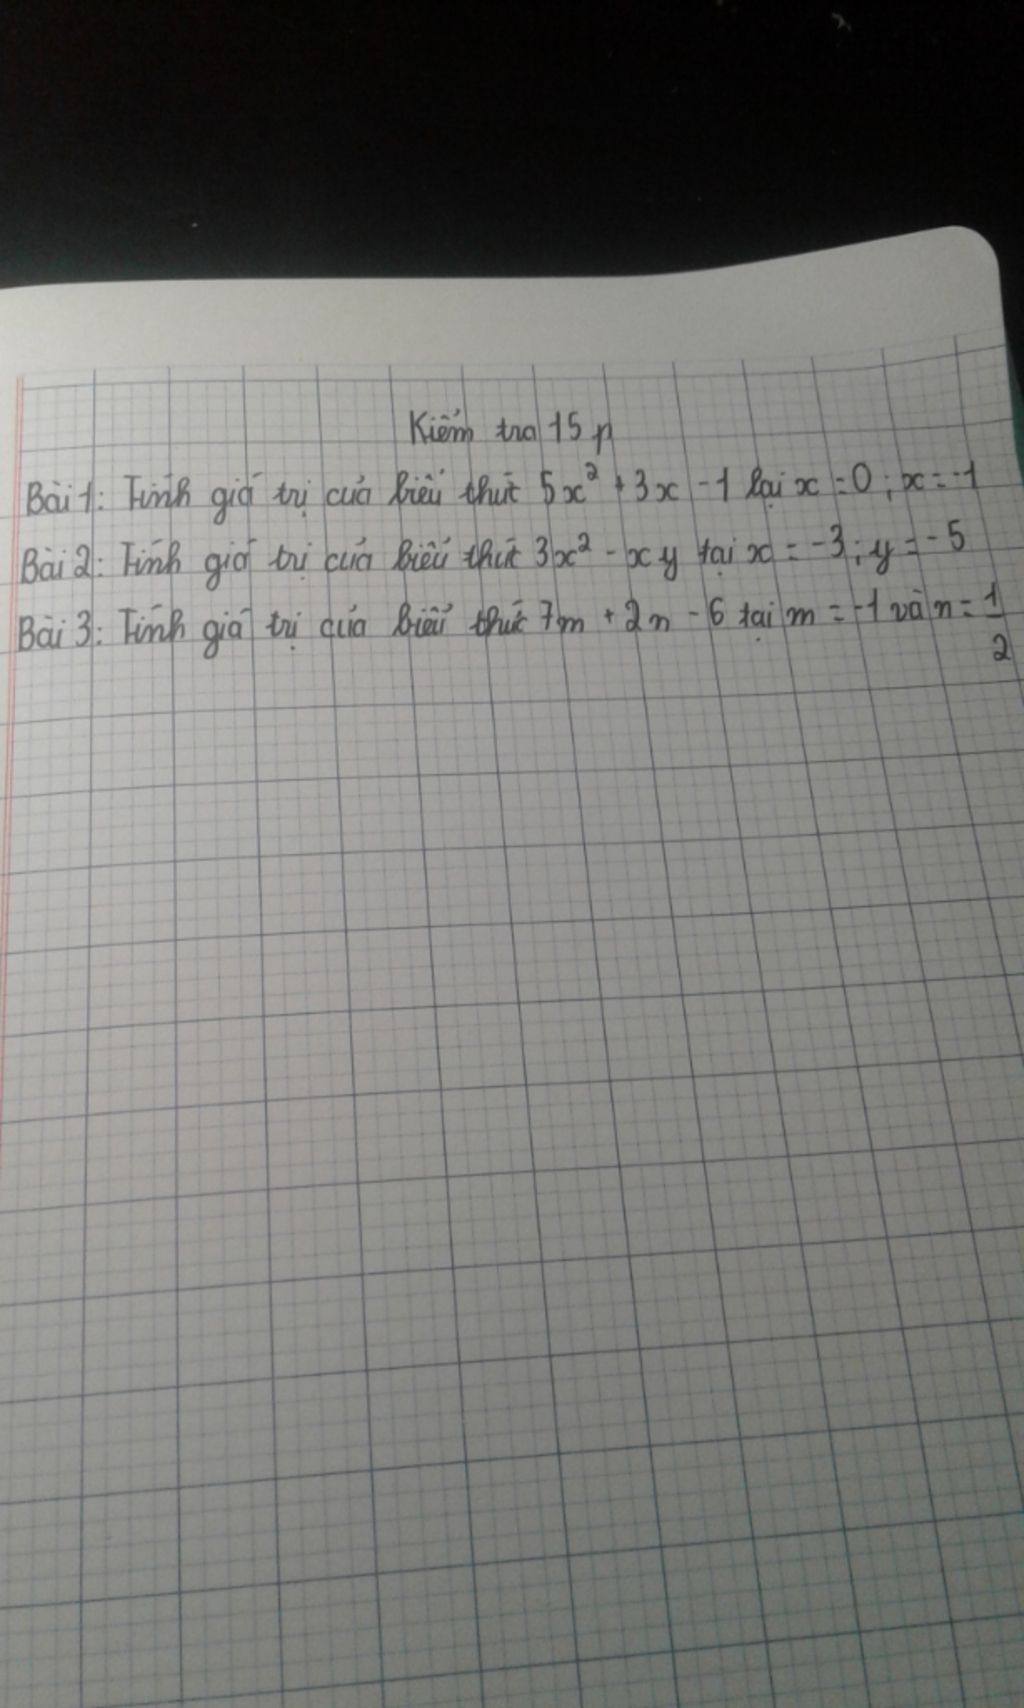 Kiểm tra 15 p
Bài 1: Tính giá trị của biểu thức 5x² + 3x - 1 tại x = 0 ; x = -1
Bài 2: Tính giá trị của biểu thức 3x² - xy tại x = -3 ; y = -5
Bài 3: Tính giá trị của biểu thức 7m + 2n - 6 tại m = -1 và n = 1/2